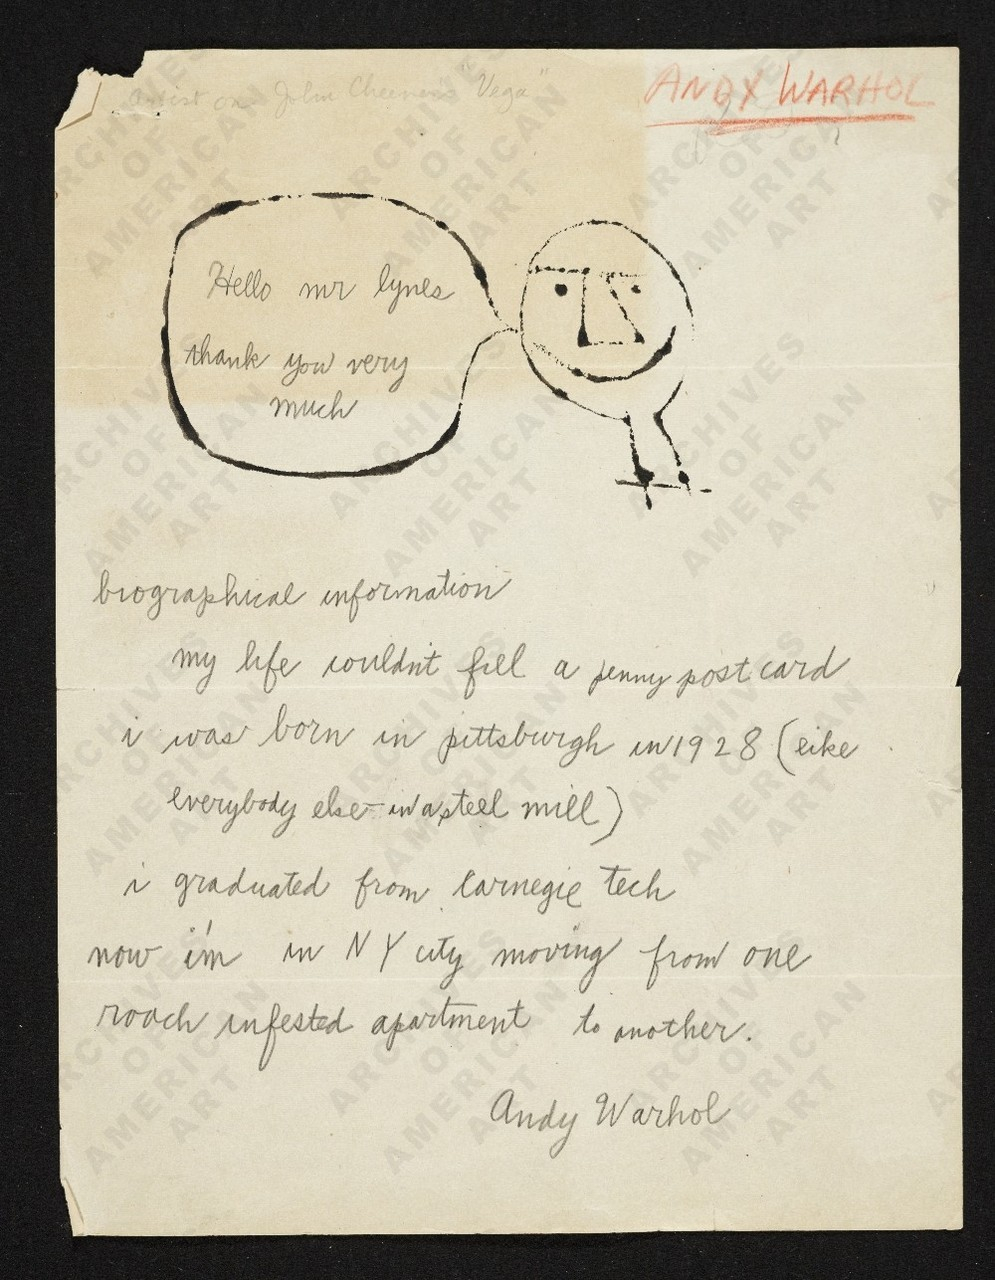 artist on John Cheever's "Vega"
ANDY WARHOL
Hello mr lynes
thank you very
much
biographical information
my life wouldn't fill a penny post card
i was born in pittsburgh in 1928 (like
everybody else - in a steel mill)
i graduated from carnegie tech
now i'm in NY city moving from one
roach infested apartment to another.
Andy Warhol
ARCHIVES
OF
AMERICAN
ART